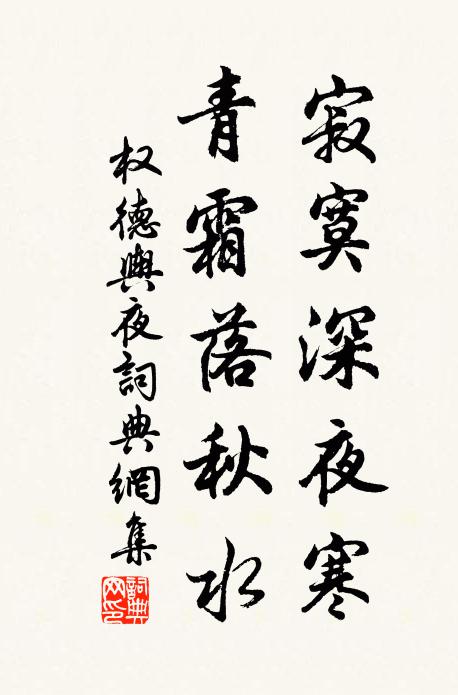 寂寞深夜寒
青霜落秋水
权德舆夜詞典網集
詞典网印